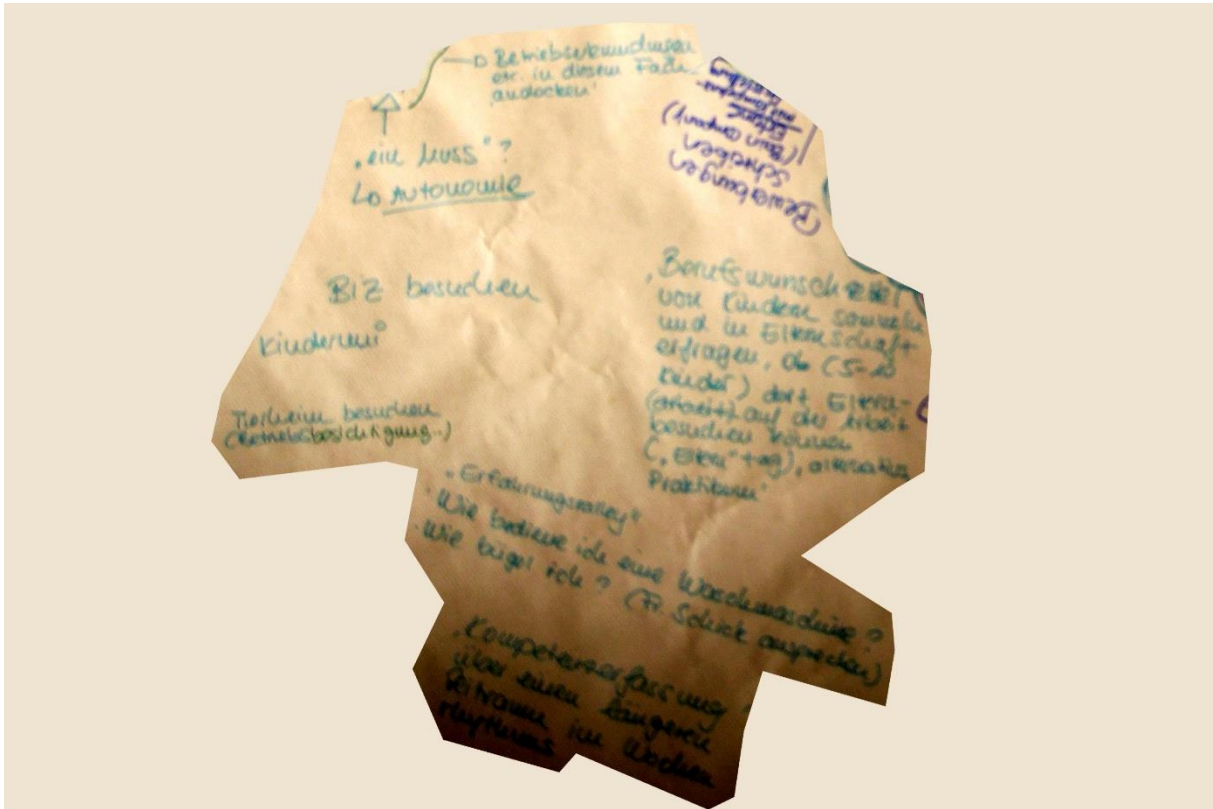 → Betriebserkundungen
etc. in diesem Fach
andocken'
„ein Muss"?
↳ Autonomie
Bewerbungen
schreiben
(Bain company)
Externe
BIZ besuchen
Kinderuni
Tierheim besuchen
(Betriebsbesichtigung..)
Berufswunsch
von Kindern sammeln
und in Elternschaft
erfragen, ob (5-10
Kinder) dort Eltern-
auf der Arbeit
besuchen können
(„Eltern"tag), alternativ
Praktikum
„Erfahrungsralley"
Wie bediene ich eine Waschmaschine?
Wie bügel ich? (Fr. Schick ansprechen)
Kompetenzerfassung
über einen längeren
Zeitraum im Wochen
rhythmus